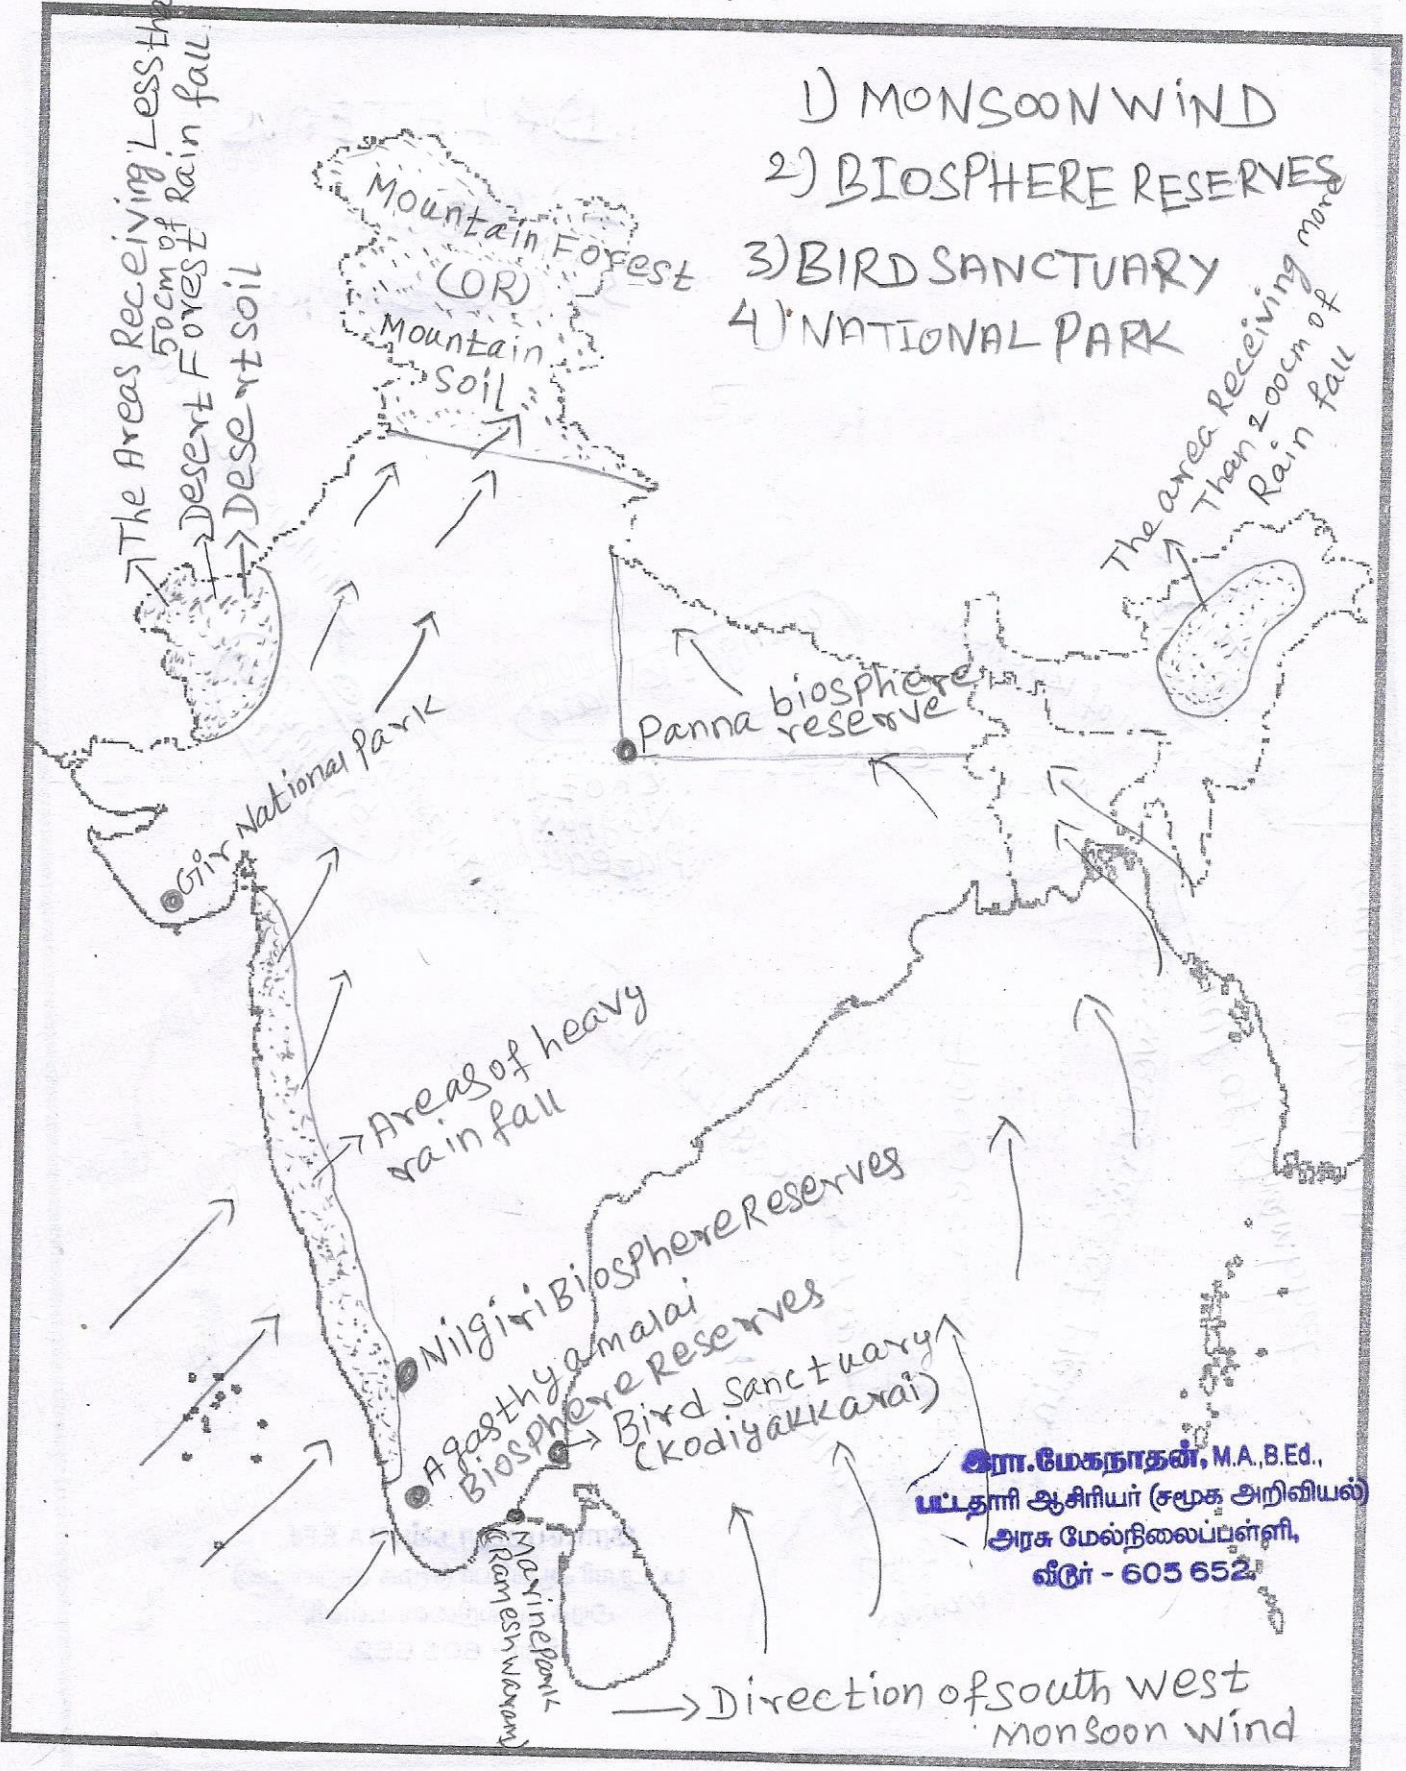 1) MONSOON WIND
2) BIOSPHERE RESERVES
3) BIRD SANCTUARY
4) NATIONAL PARK
The Areas Receiving Less tha
50cm of Rain fall
Desert Forest
Desert soil
Mountain Forest
(OR)
Mountain
Soil
The area Receiving more
Than 200cm of
Rain fall
Panna biosphere
reserve
Gir National Park
Areas of heavy
rain fall
Nilgiri Biosphere Reserves
Agasthyamalai
Biosphere Reserves
Bird Sanctuary
(Kodiyakkarai)
Marine Park
(Rameshwaram)
இரா.மேகநாதன், M.A.,B.Ed.,
பட்டதாரி ஆசிரியர் (சமூக அறிவியல்)
அரசு மேல்நிலைப்பள்ளி,
வீடூர் - 605 652.
Direction of south west
Monsoon Wind